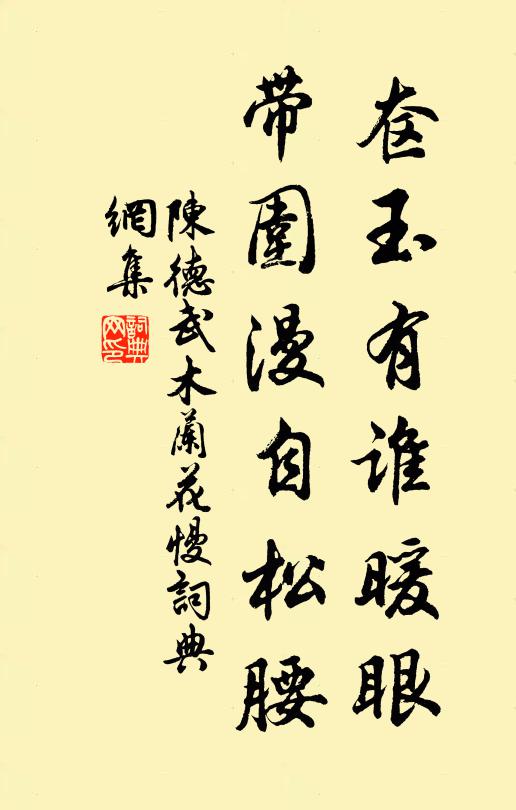 奁玉有谁暖眼
带圍漫自松腰
陳德武木蘭花慢詞典
網集
詞典
网印